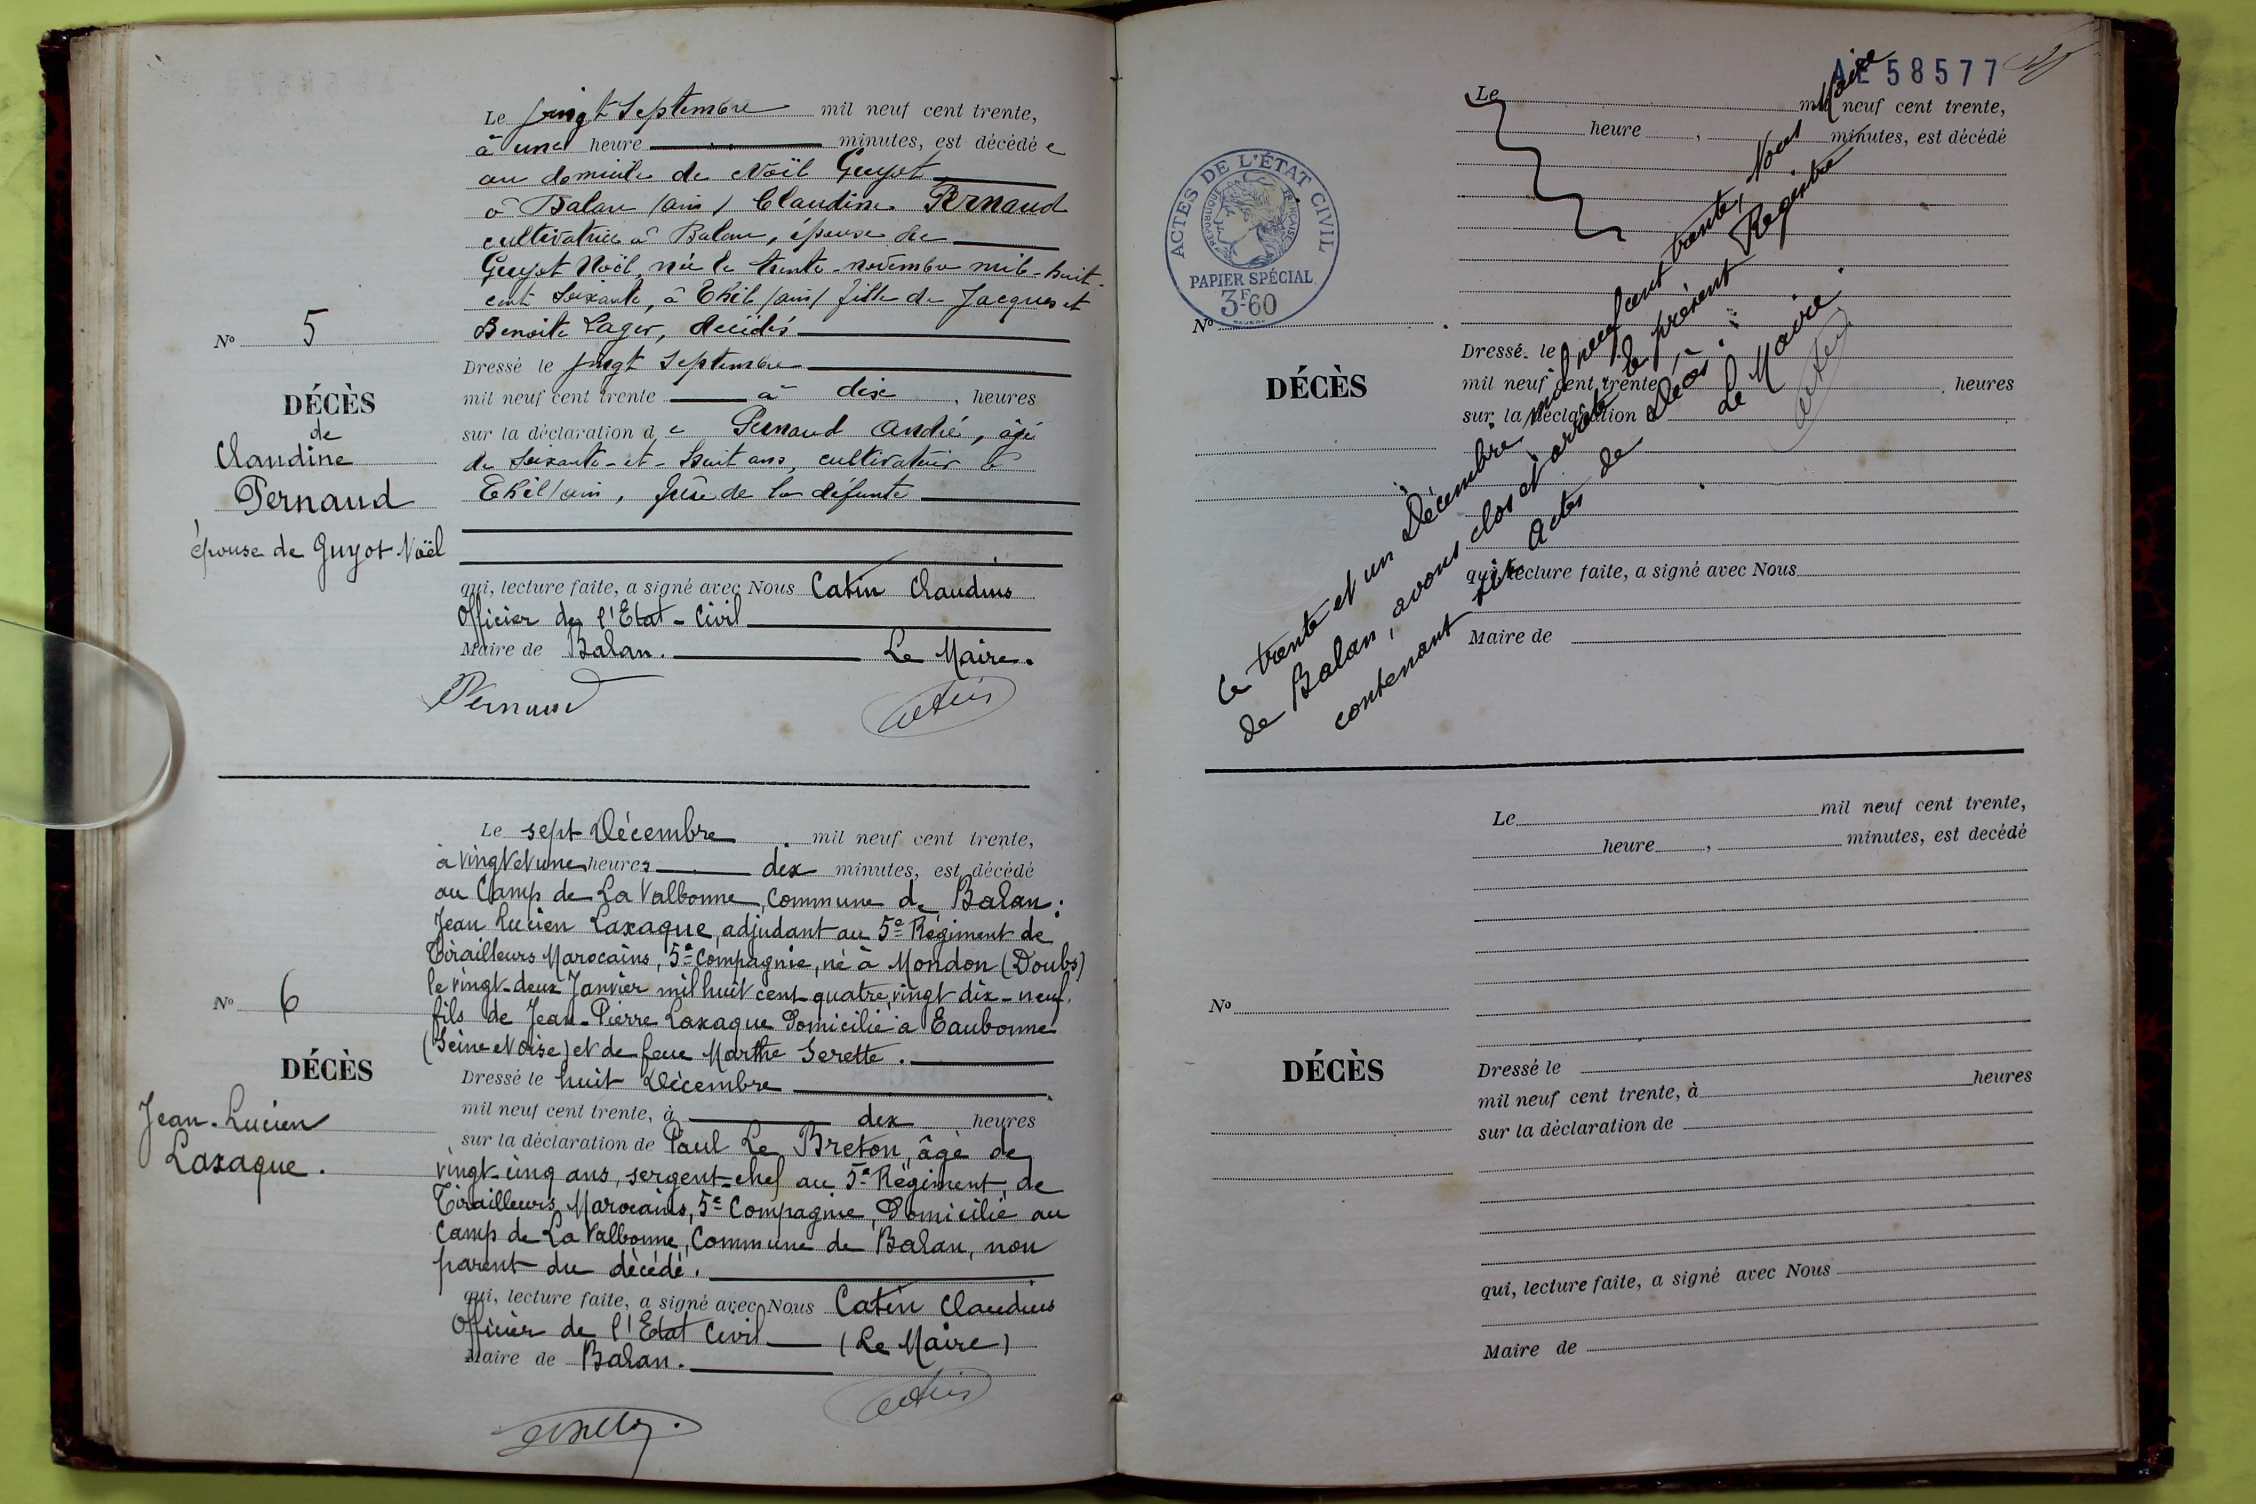 Le vingt Septembre mil neuf cent trente,
à une heure minutes, est décédée
au domicile de Noël Guyot
à Balan (ain) Claudine Pernaud
cultivatrice à Balan, épouse de
Guyot Noël, née le trente novembre mil-huit-
cent soixante, à Thil (ain) fille de Jacques et
Benoite Lager, décédés
N° 5
DÉCÈS
de
Claudine
Pernaud
épouse de Guyot Noël
Dressé le vingt Septembre
mil neuf cent trente à dix heures
sur la déclaration de Pernaud André, âgé
de soixante-et-huit ans, cultivateur à
Thil (ain, frère de la défunte
qui, lecture faite, a signé avec Nous Catin Claudius
Officier de l'Etat-Civil
Maire de Balan. Le Maire.
Pernaud
Catin
Le sept Décembre mil neuf cent trente,
à vingt et une heures dix minutes, est décédé
au Camp de La Valbonne, Commune de Balan:
Jean Lucien Laxaque, adjudant au 5e Régiment de
Tirailleurs Marocains, 5e Compagnie, né à Mondon (Doubs)
le vingt-deux Janvier mil huit cent quatre vingt dix-neuf,
fils de Jean-Pierre Laxaque domicilié à Eaubonne
(Seine et Oise) et de feue Marthe Serette.
N° 6
DÉCÈS
Jean-Lucien
Laxaque.
Dressé le huit Décembre
mil neuf cent trente, à dix heures
sur la déclaration de Paul Le Breton, âgé de
vingt-cinq ans, sergent-chef au 5e Régiment de
Tirailleurs Marocains, 5e Compagnie, Domicilié au
Camp de La Valbonne, Commune de Balan, non
parent du décédé.
qui, lecture faite, a signé avec Nous Catin Claudius
Officier de l'Etat Civil (Le Maire)
Maire de Balan.
Catin
AE 58577
ACTES DE L'ÉTAT CIVIL
RÉPUBLIQUE FRANÇAISE
PAPIER SPÉCIAL
3F60
Le mil neuf cent trente,
heure , minutes, est décédé
N°
DÉCÈS
Dressé le
mil neuf cent trente heures
sur la déclaration
qui, lecture faite, a signé avec Nous
Maire de
Ce trente et un Décembre mil neuf cent trente, Nous Maire
de Balan, avons clos et arrêté le présent Registre
contenant six Actes de Décès:
Le Maire.
Catin
Le mil neuf cent trente,
heure , minutes, est decédé
N°
DÉCÈS
Dressé le
mil neuf cent trente, à heures
sur la déclaration de
qui, lecture faite, a signé avec Nous
Maire de